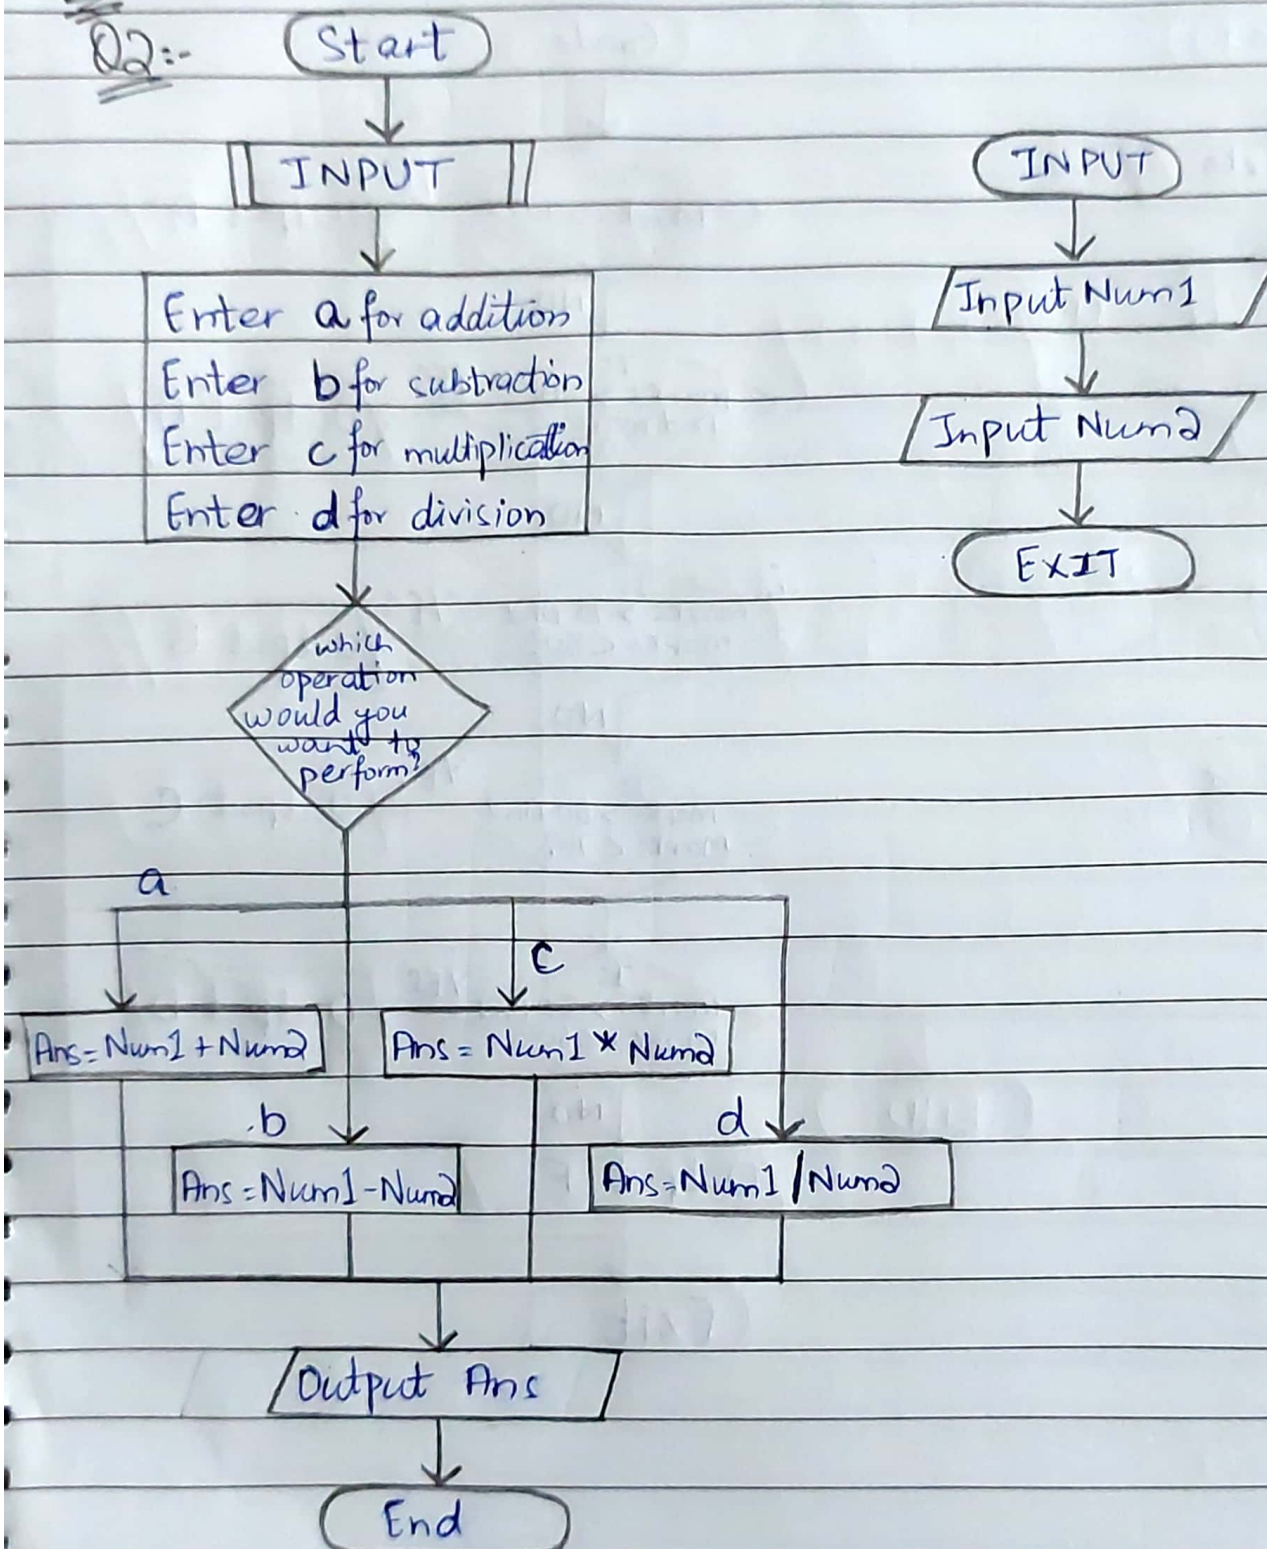 Q2:-
Start
INPUT
Enter a for addition
Enter b for subtraction
Enter c for multiplication
Enter d for division
which
operation
would you
want to
perform?
a
c
Ans=Num1+Num2
Ans = Num1 * Num2
b
d
Ans=Num1-Num2
Ans=Num1/Num2
Output Ans
End
INPUT
Input Num1
Input Num2
EXIT